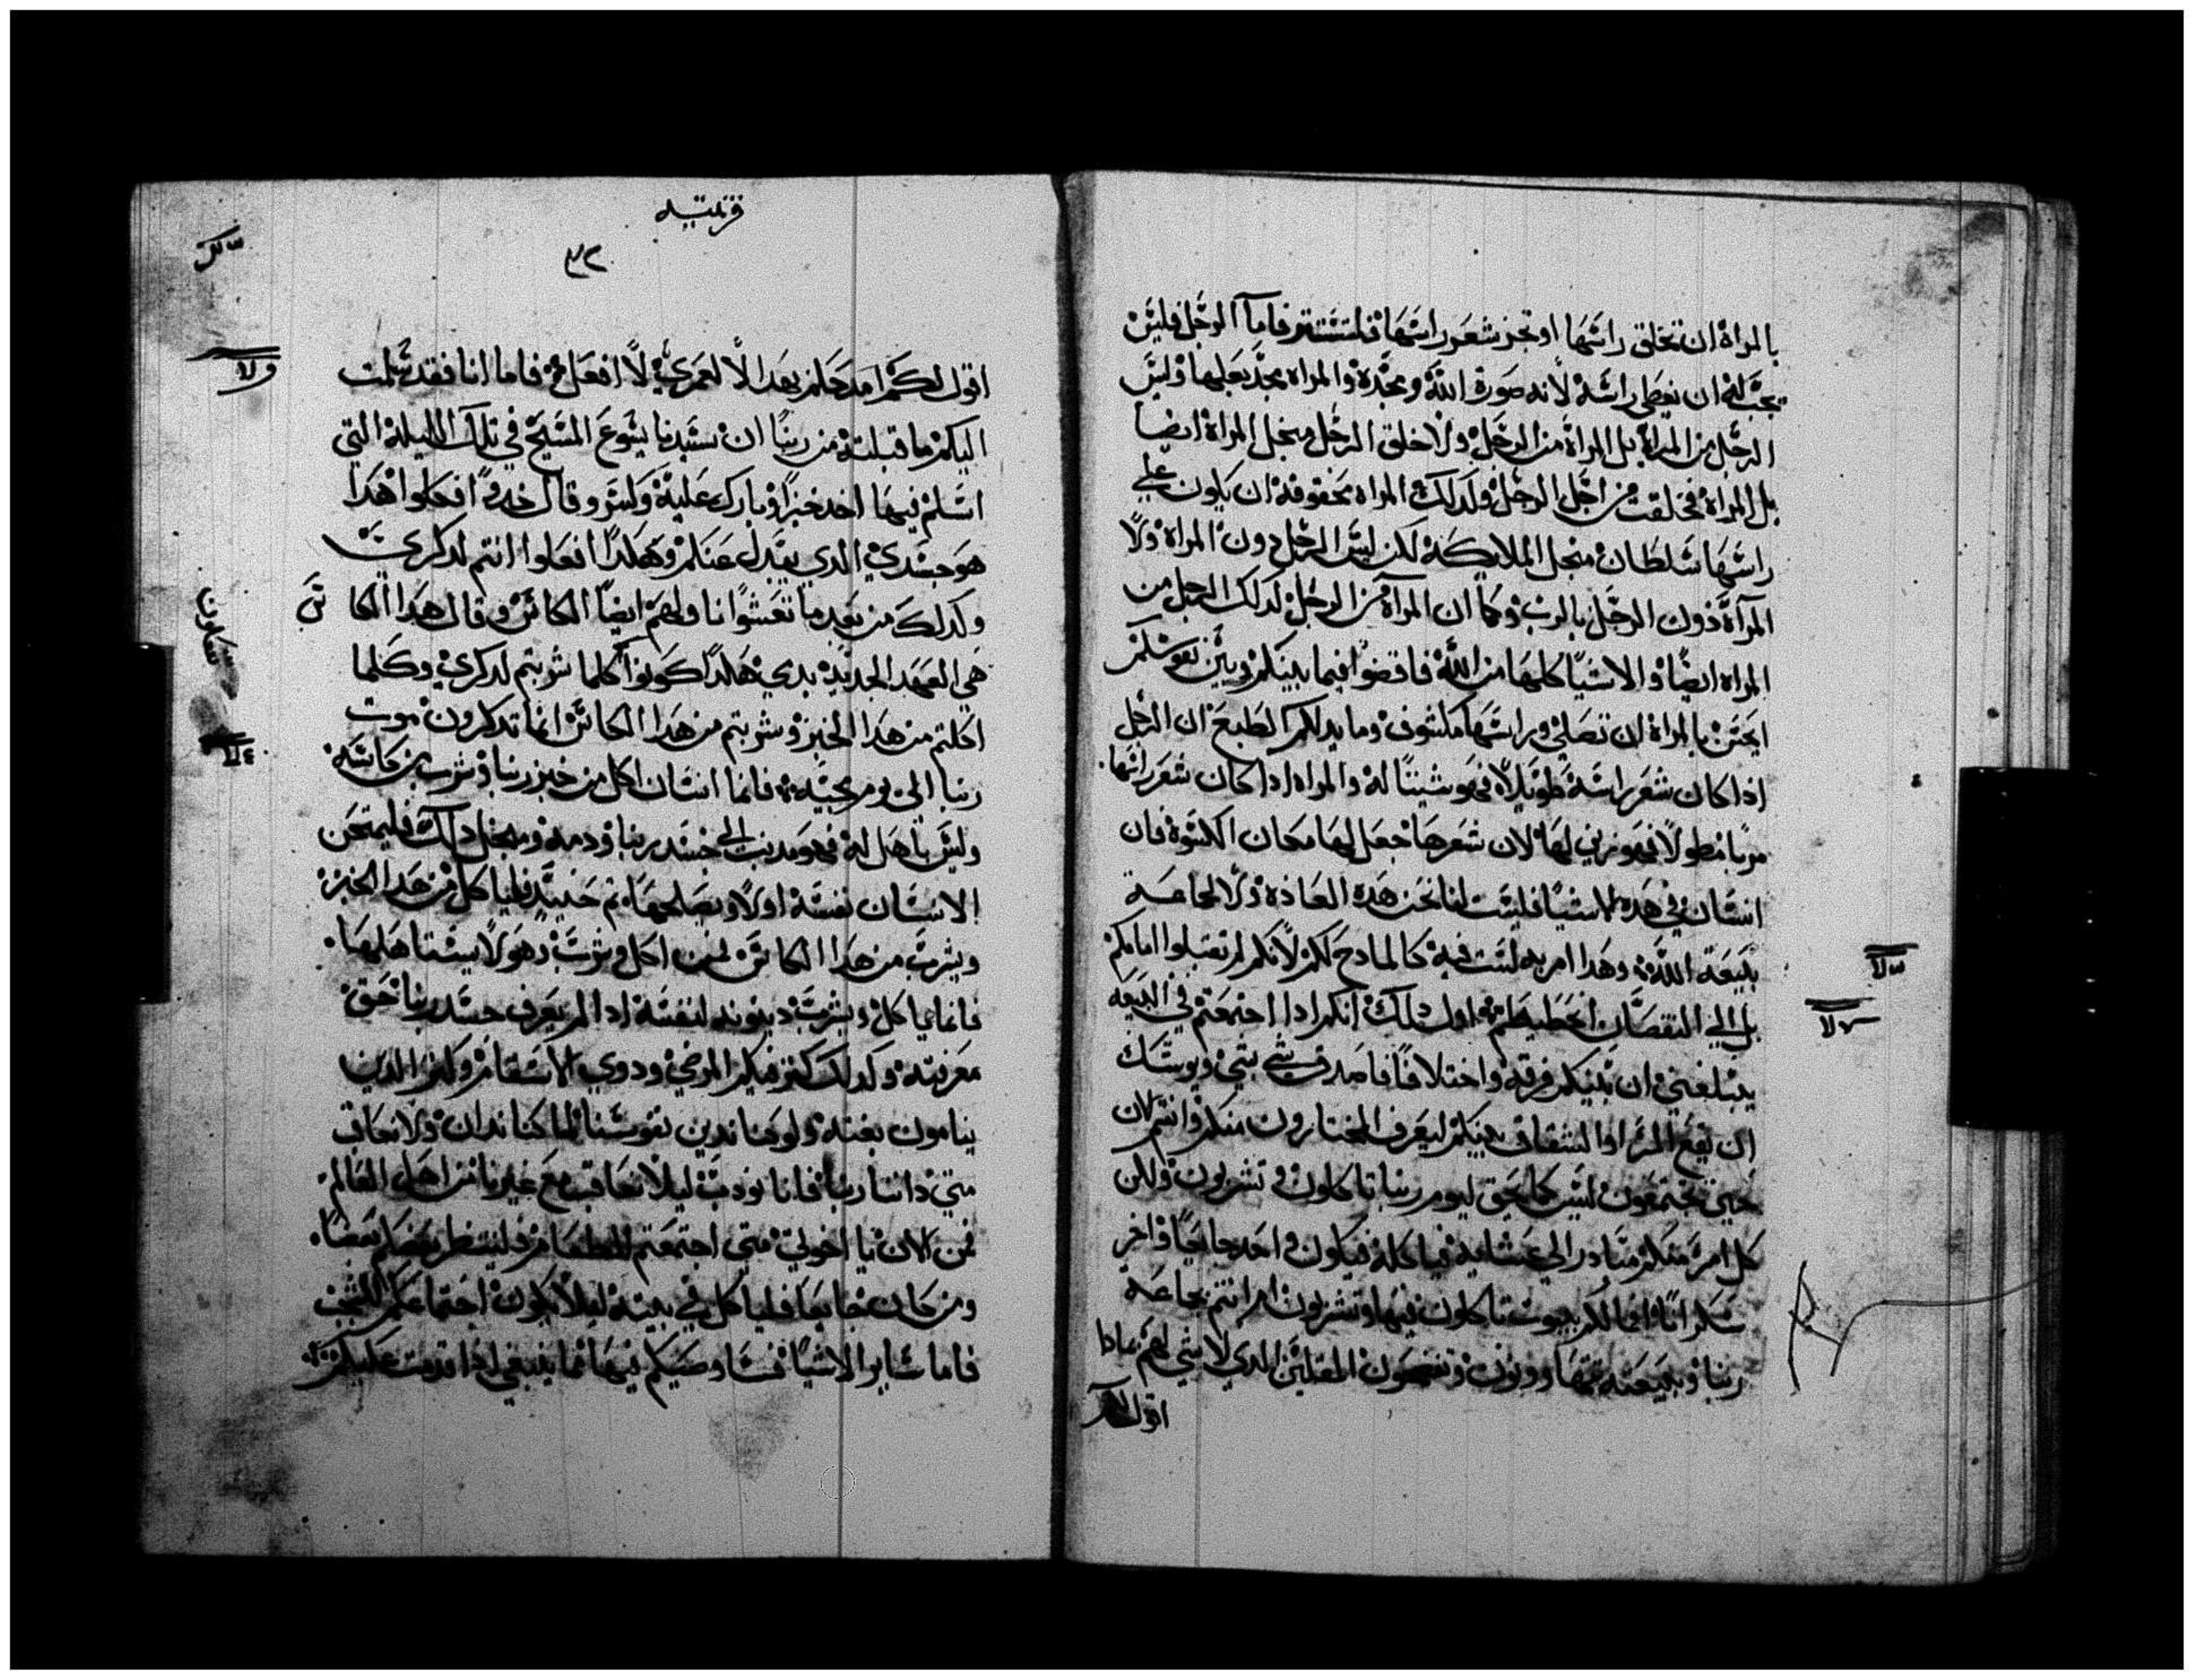 بالمراة ان تحلق راسها او تجز شعر راسها فلتستتر فاما الرجل فليس
يجب له ان يغطي راسه لانه صورة الله ومجده والمراه مجد بعلها وليس
الرجل من المراة بل المراة من الرجل ولا خلق الرجل منجل المراة ايضا
بل المراة خلقت من اجل الرجل ولدلك المراه محقوقة ان يكون علي
راسها سلطان منجل الملايكة لكن ليس الرجل دون المراة ولا
المرآة دون الرجل بالرب وكما ان المرآة من الرجل لدلك الرجل من
المراه ايضا والاشيا كلها من الله فاقضوا فيما بينكم وبين نفوسكم
ايحسن بالمراة ان تصلي وراسها مكشوف وما يدلكم الطبع ان الرجل
ادا كان شعر راسه طويلا فهو شينا له والمراه ادا كان شعر راسها
مربا مطولا فهو زين لها لان شعرها جعل لها مكان الكسوة فان
انسان في هده الاشيا فليست لنا نحن هده العاده ولا لجماعة
بيعة الله وهدا امر به لست فيه كالمادح لكم لانكم لم تقبلوا امامكم
بل الي النقصان انحطيطم اول دلك انكم ادا اجتمعتم في البيعه
يبلغني ان بينكم فرقة واختلافا فاصدق شي بشي ويوشك
ان يقع المرا والشقاق بينكم ليعرف المختارون منكم وانتم الان
حين تجتمعون ليس كما يحق ليوم ربنا تاكلون وتشربون ولكن
كل امر منكم مبادر الي عشايه فياكله فيكون واحد جايعا واخر
سكرانا افما لكم بيوت تاكلون فيها وتشربون ام انتم بجماعة
ربنا وبيعته تتهاودون وتفضحون المقلين الدي لا شي لهم مادا
اقول لكم
قرنتيه
٣٢
اقول لكم امدحكم بهدا لا لعمري لا افعل فاما انا فقد سلمت
اليكم ما قبلت من ربنا ان سيدنا يسوع المسيح في تلك الليلة التي
اسلم فيها اخد خبزا وبارك عليه وكسر وقال خدوا فكلوا هدا
هو جسدي الدي يبدل عنكم وهكدا افعلوا انتم لدكري
ولدلك من بعد ما تعشوا ناولهم ايضا الكاس وقال هدا الكاس
هي العهد الجديد بدمي هكدا كونوا كلما شربتم لدكري وكلما
اكلتم من هدا الخبز وشربتم من هدا الكاس انما تدكرون موت
ربنا الي يوم مجيئه فانما انسان اكل من خبز ربنا وشرب من كاسه
وليس باهل له فهو مدنب الي جسد ربنا ودمه ومنجل دلك فليمتحن
الانسان نفسه اولا ويصلحها ثم حينيد فلياكل من هدا الخبز
ويشرب من هدا الكاس لمن اكل وشرب وهو لا يستاهلها
فانما ياكل ويشرب دينونه لنفسه ادا لم يعرف جسد ربنا حق
معرفته ولدلك كثر فيكم المرضي ودوي الاسقام وكثر الدين
ينامون بغته ولو كنا ندين نفوسنا لما كنا ندان ولا نعاقب
متي داننا ربنا فانما نودب ليلا نعاقب مع غيرنا من اهل العالم
فمن الان يا اخوتي متي اجتمعتم للطعام فلينتظر بعضكم بعضا
ومن كان جايعا فلياكل في بيته ليلا يكون اجتماعكم للشجب
فاما ساير الاشيا فسا وصيكم فيها بما ينبغي ادا قدمت عليكم